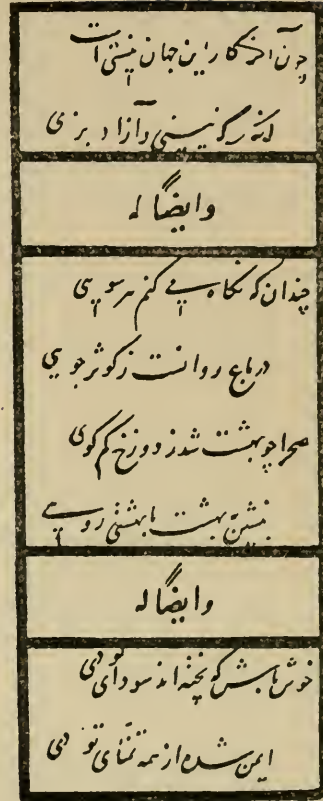 چون آخر کار این جهان نیستی است
انگار که نیستی و آزاد بزی
وایضاً له
چندان که نگاه می کنم هر سویی
در باغ روانست ز کوثر جویی
صحرا چو بهشت شد ز دوزخ کم گوی
بنشین ببهشت با بهشتی رویی
وایضاً له
خوش باش که پخته اند سودای تو دی
ایمن شده از همه تمنای تو دی